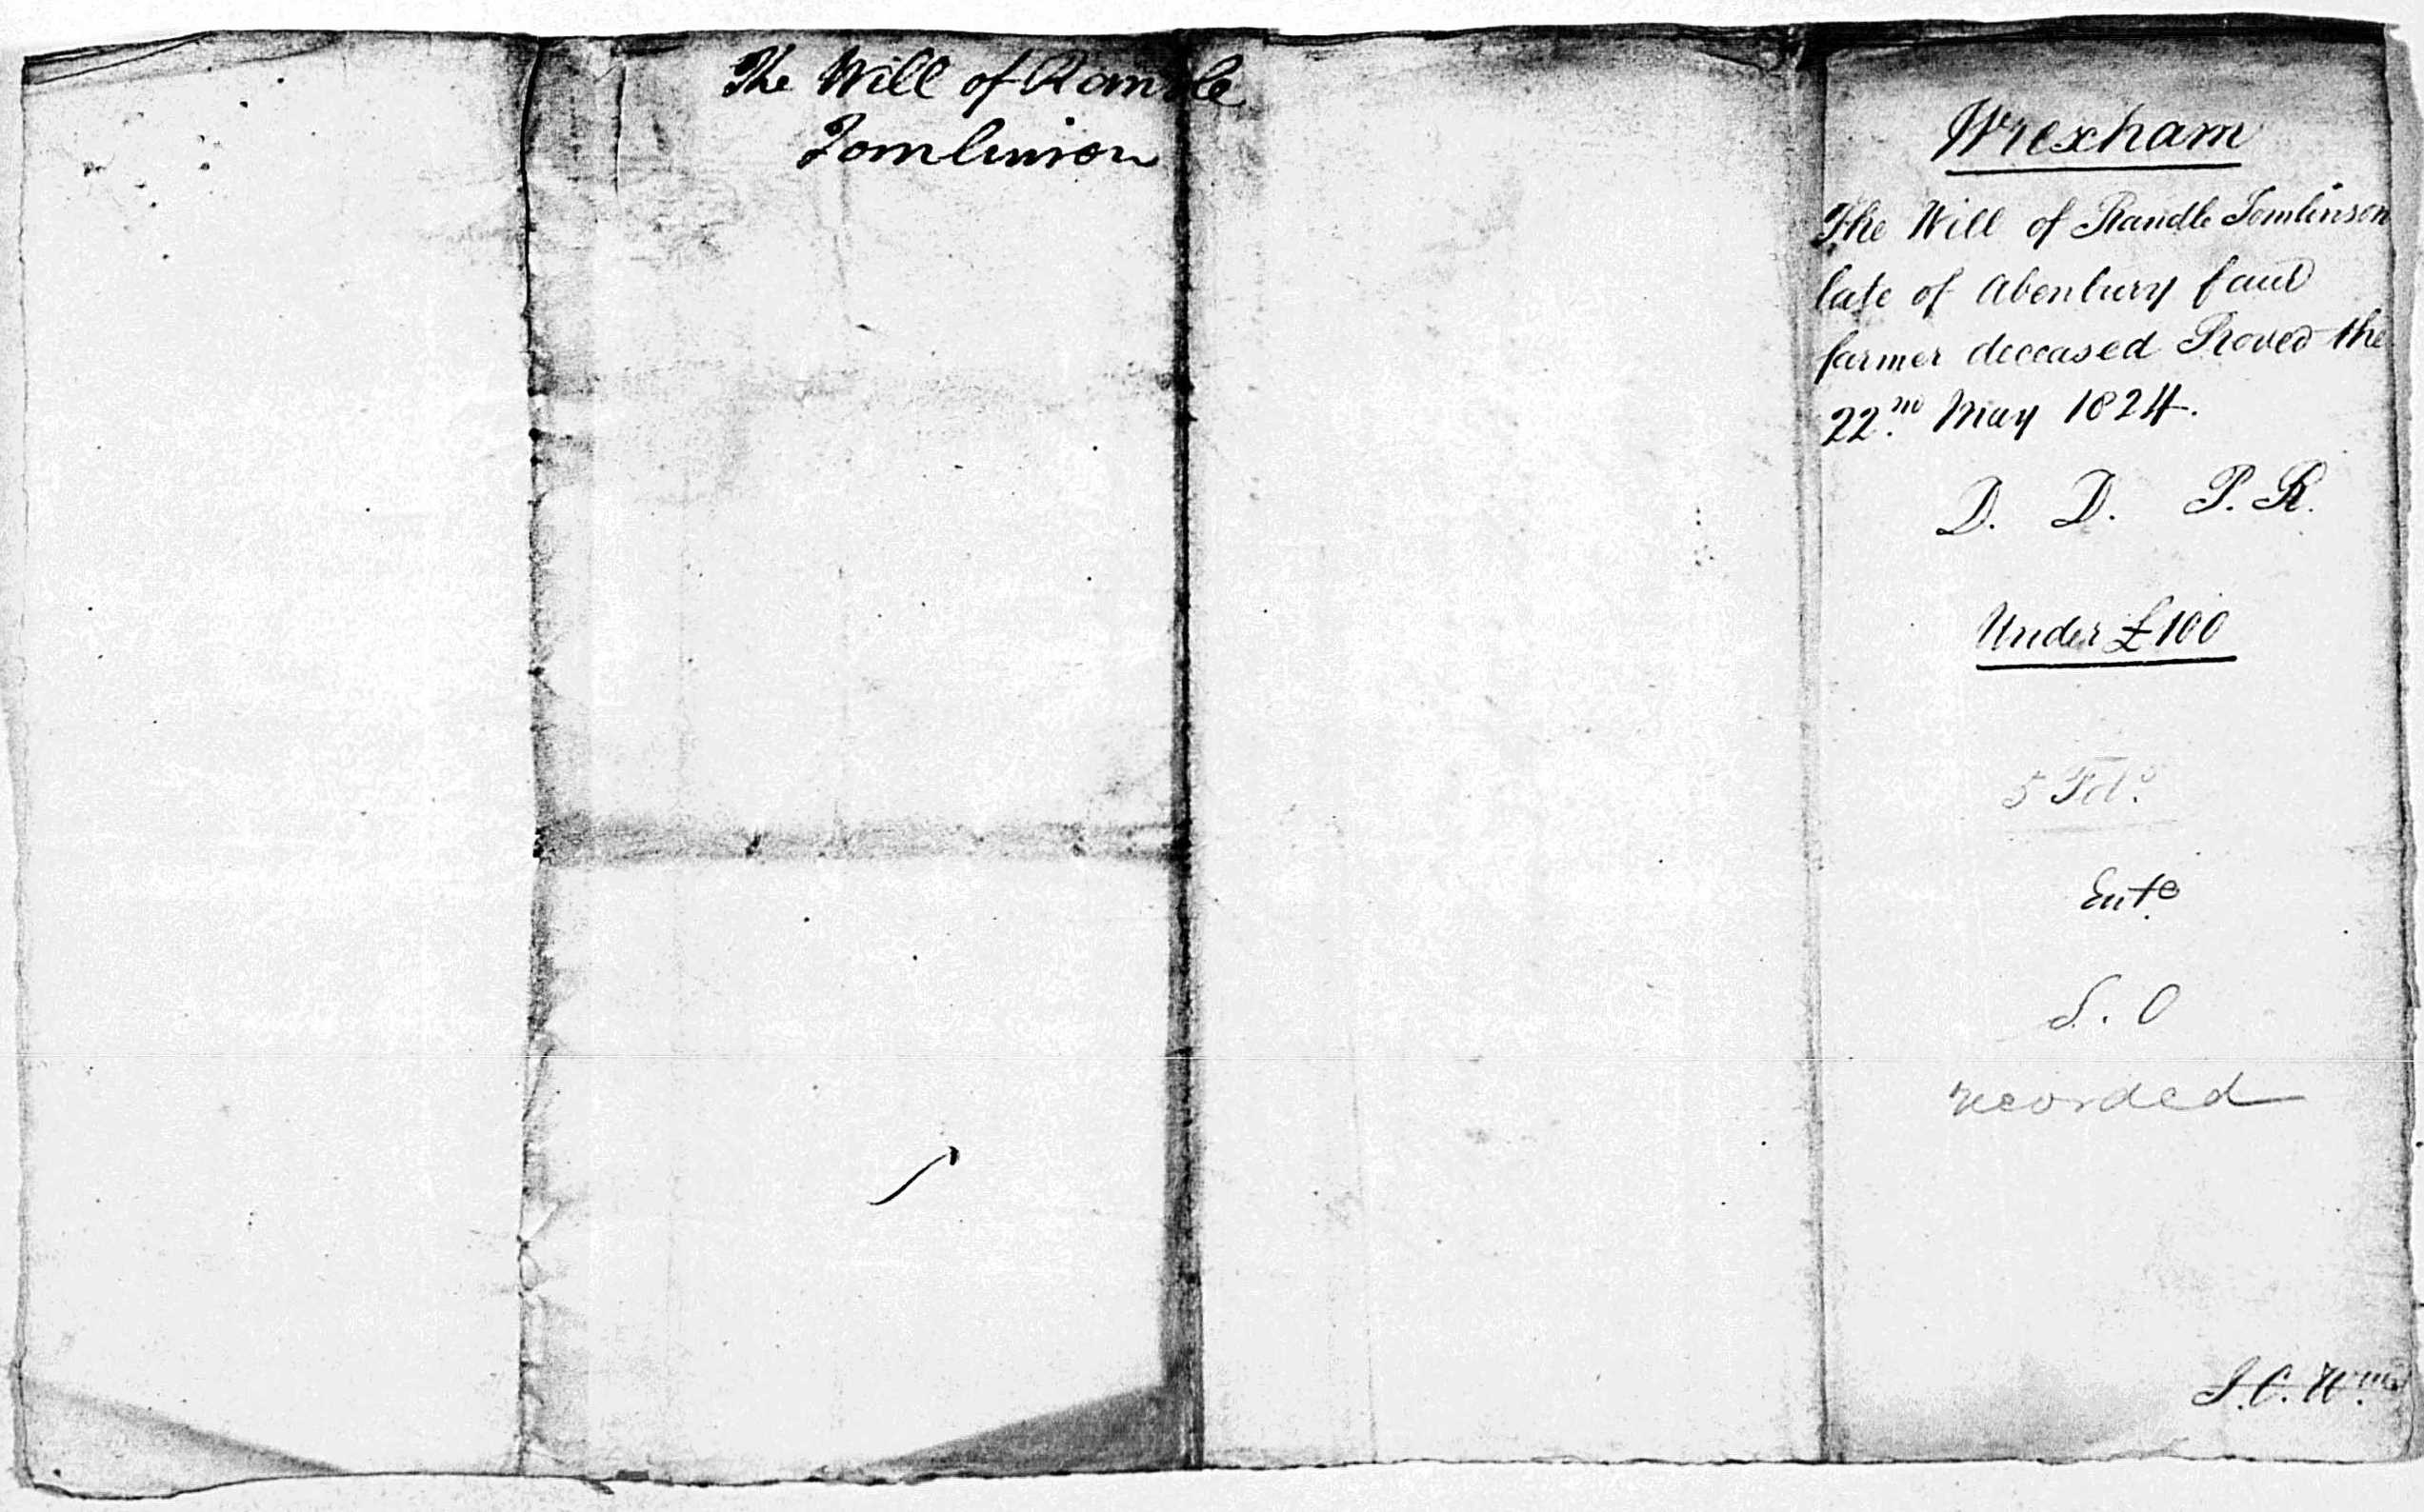 The Will of Randle
Tomlinson
Wrexham
The Will of Randle Tomlinson
late of Abenbury faur
farmer deceased Proved the
22.nd May 1824.
D. D. P. R.
Under £100
Ent.d
S. O
recorded